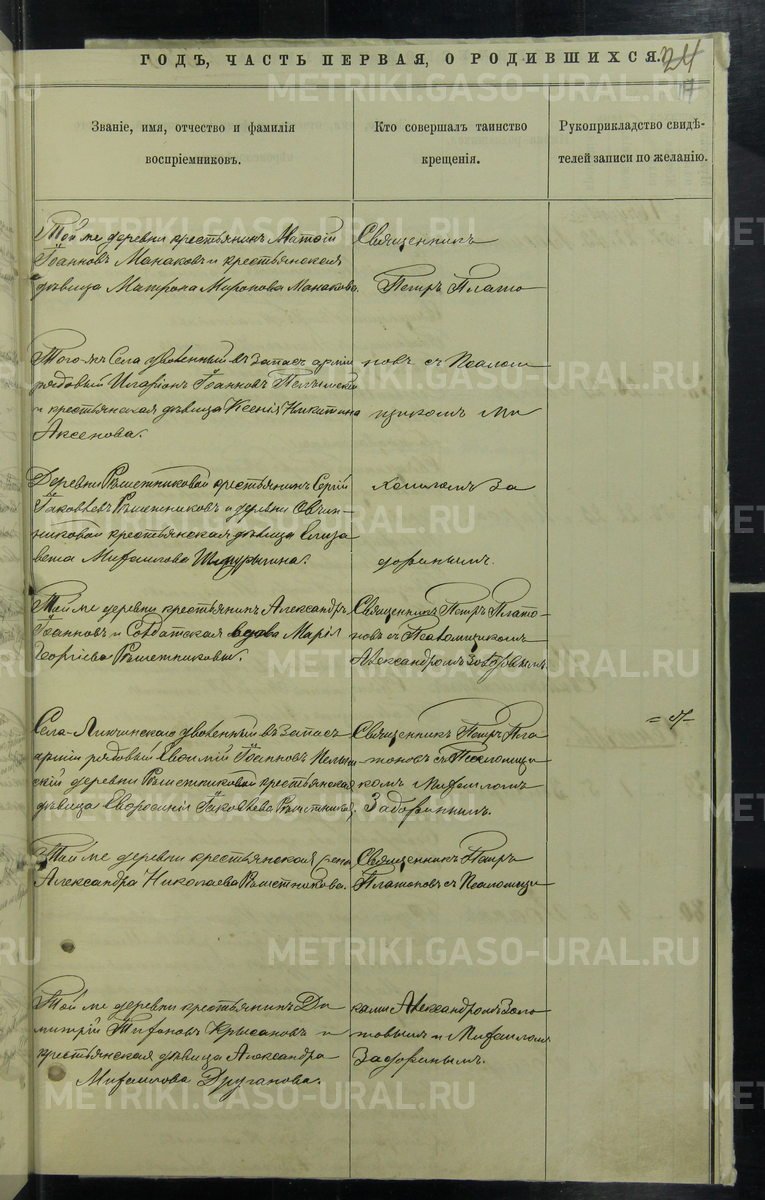 ГОДЪ, ЧАСТЬ ПЕРВАЯ, О РОДИВШИХСЯ.
24
17
Званіе, имя, отчество и фамилія
воспріемниковъ.
Кто совершалъ таинство
крещенія.
Рукоприкладство свидѣ-
телей записи по желанію.
Той же деревни крестьянинъ Матѳій
Іоанновъ Манаковъ и крестьянская
дѣвица Матрона Миронова Манакова.
Священникъ
Петръ Плато
Того-же Села уволенный въ запасъ арміи
рядовый Иларіонъ Іоанновъ Пелымскій
и крестьянская дѣвица Ксенія Никитина
Аксенова.
новъ съ Псалом
щикомъ Ми
Деревни Рѣшетниковой крестьянинъ Сергій
Іаковлевъ Рѣшетниковъ и деревни Овчин-
никовой крестьянская дѣвица Елиза
вета Михаилова
хаиломъ За
доринымъ.
Той же деревни крестьянинъ Александръ
Іоанновъ и Солдатская вдова Марія
Георгіева Рѣшетниковы.
Священникъ Петръ Плато-
новъ съ Псаломщикомъ
Александромъ
Села уволенный въ запасъ
арміи рядовый Евѳимій Іоанновъ Пелым
скій деревни Рѣшетниковой крестьянская
дѣвица Евфросинія Іаковлева
Священникъ Петръ Пла
тоновъ съ Псаломщи
комъ Михаиломъ
Задоринымъ.
Той же деревни крестьянская
Александра Николаева Рѣшетникова.
Священникъ Петръ
Платоновъ съ Псаломщи
Той же деревни крестьянинъ Ди
митрій Тихоновъ Крысановъ и
крестьянская дѣвица Александра
Михаилова Друганова.
ками Александромъ Золо
товымъ и Михаиломъ
Задоринымъ.
METRIKI.GASO-URAL.RU
METRIKI.GASO-URAL.RU
METRIKI.GASO-URAL.RU
METRIKI.GASO-URAL.RU
METRIKI.GASO-URAL.RU
METRIKI.GASO-URAL.RU
METRIKI.GASO-URAL.RU
METRIKI.GASO-URAL.RU